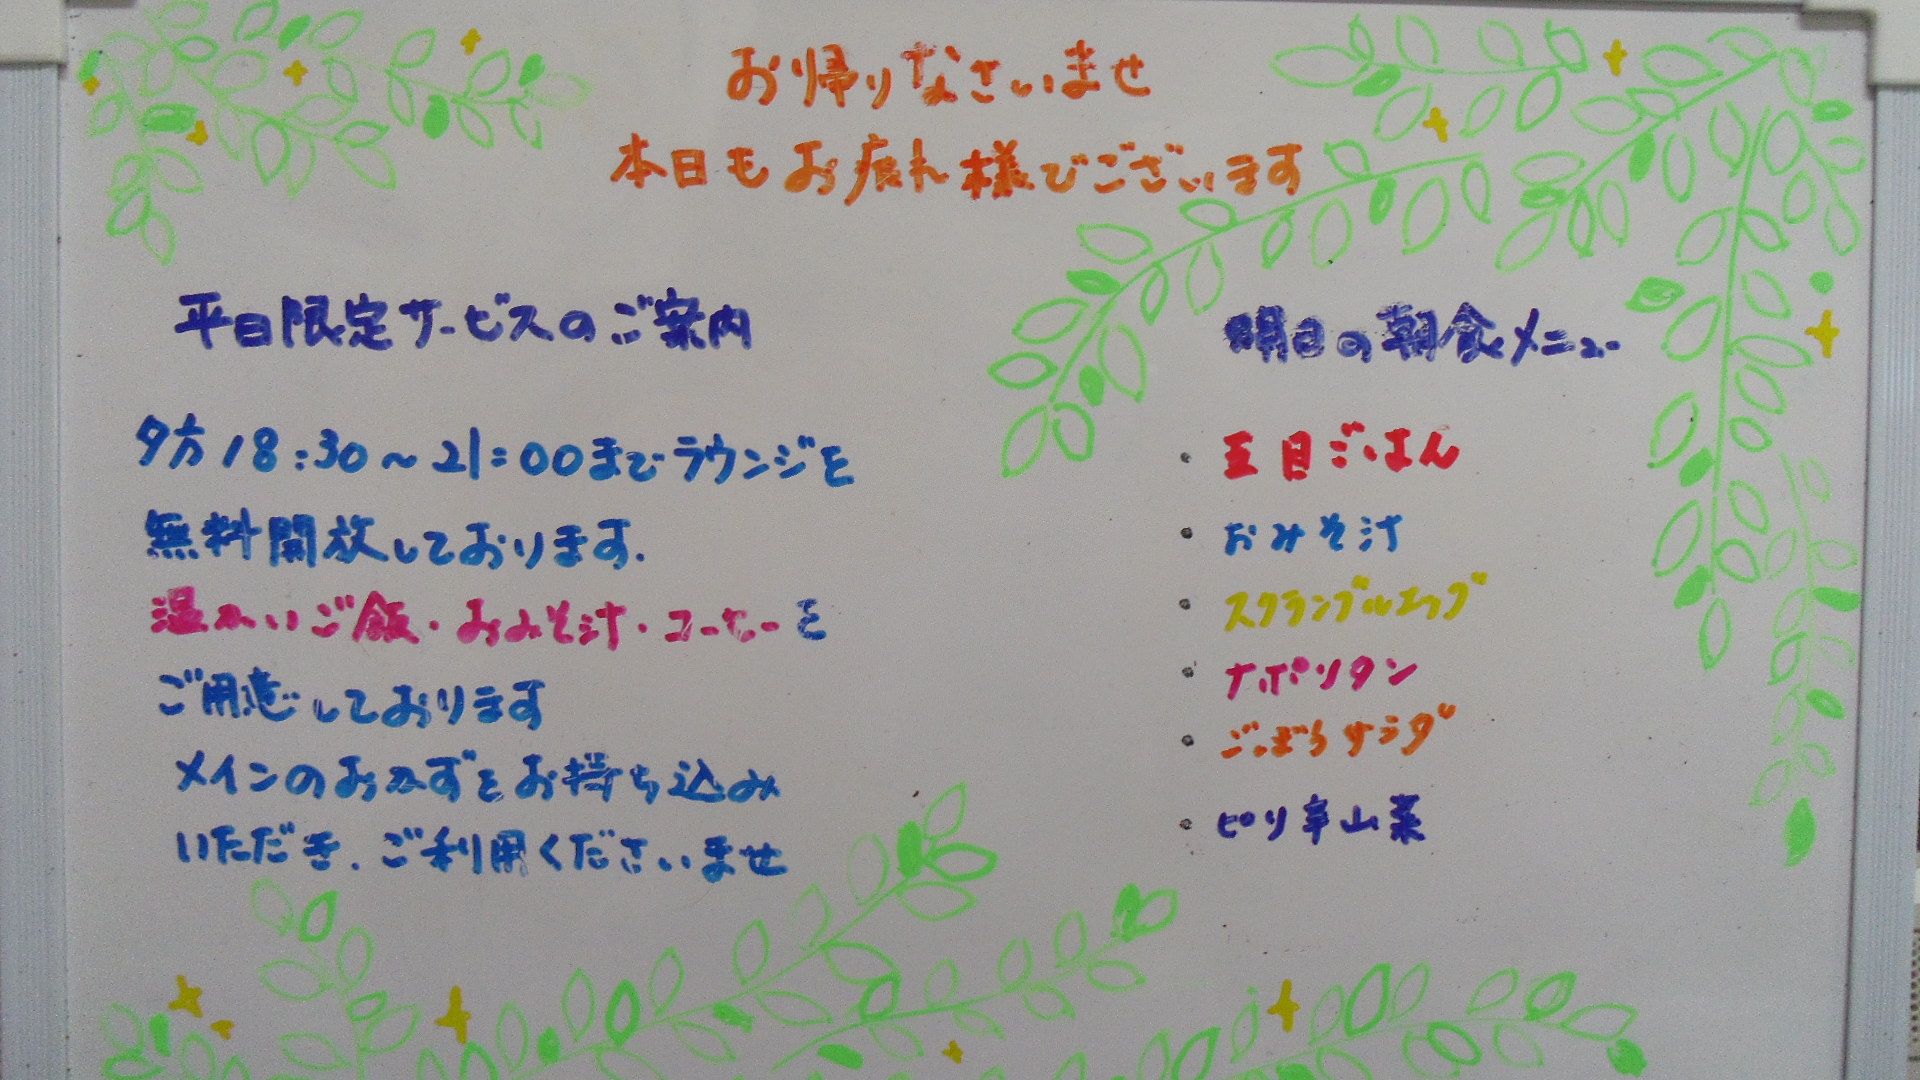 お帰りなさいませ
本日もお疲れ様でございます
平日限定サービスのご案内
夕方18:30～21:00までラウンジを
無料開放しております.
温かいご飯・おみそ汁・コーヒーを
ご用意しております
メインのおかずをお持ち込み
いただき、ご利用くださいませ
明日の朝食メニュー
・五目ごはん
・おみそ汁
・スクランブルエッグ
・ナポリタン
・ごぼうサラダ
・ピリ辛山菜